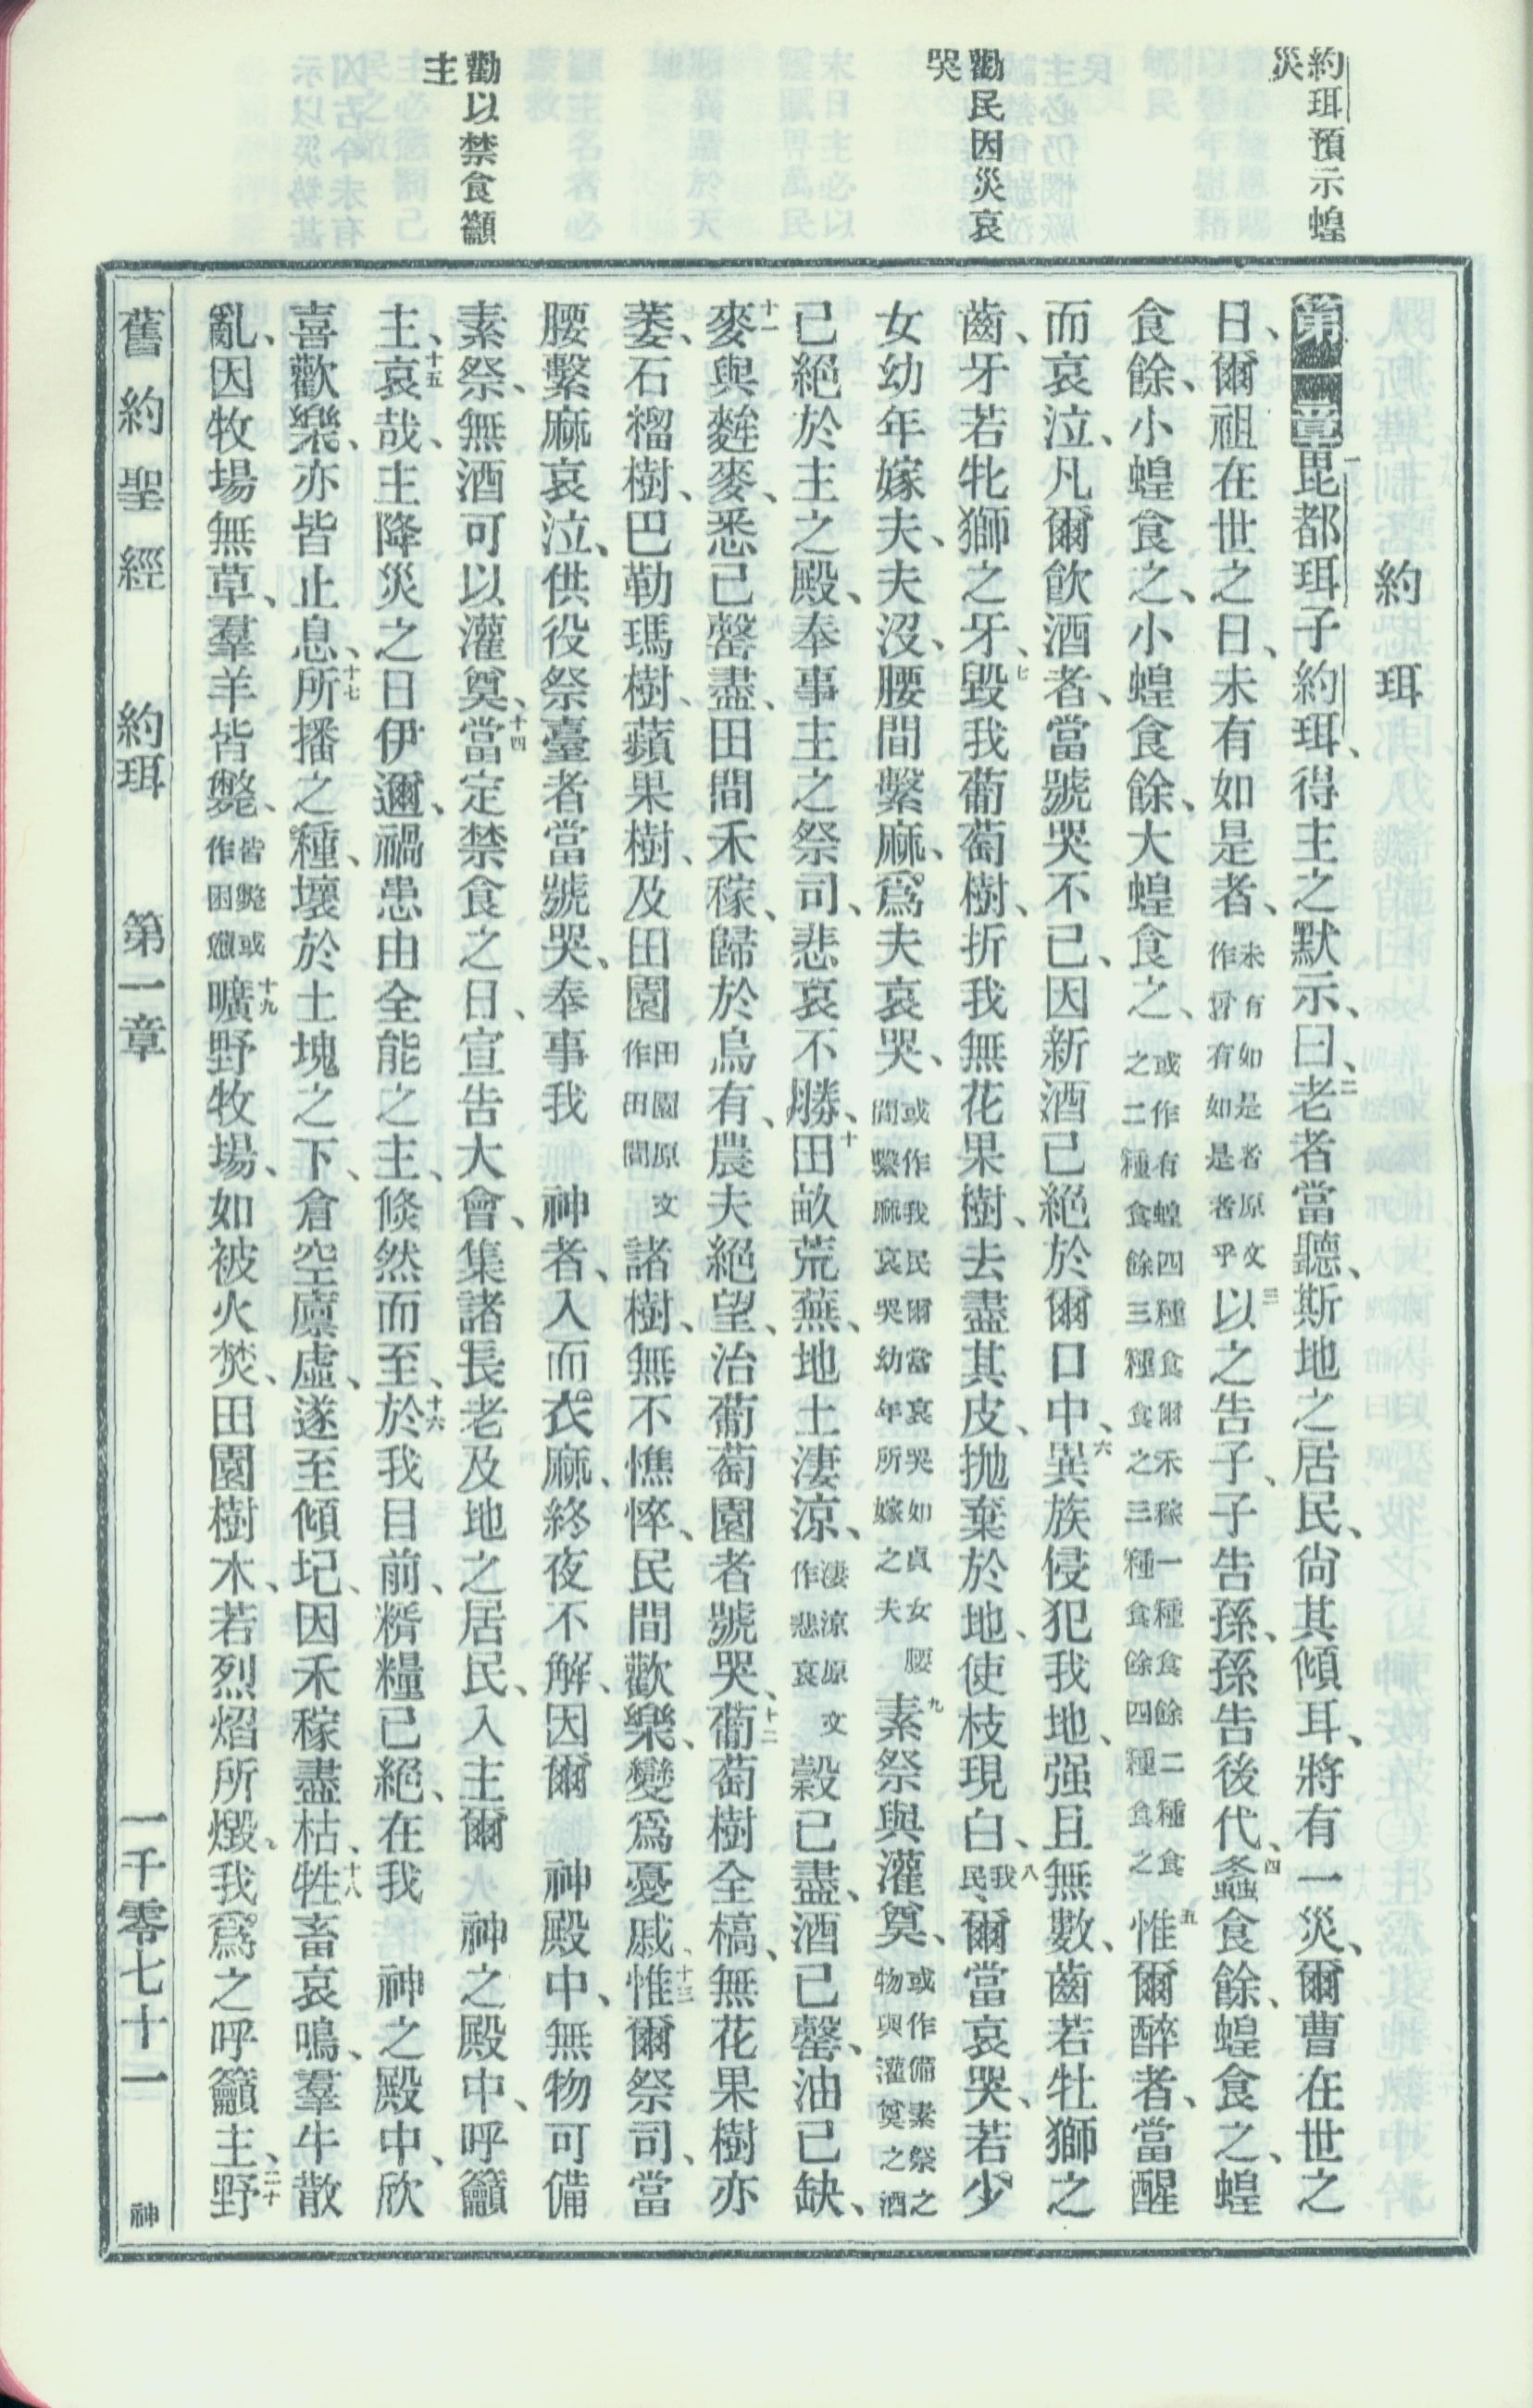 約珥預示蝗
災
勸民因災哀
哭
勸以禁食籲
主
約珥
第一章一毘都珥子約珥、得主之默示、曰、二老者當聽、斯地之居民、尙其傾耳、將有一災、爾曹在世之
日、爾祖在世之日、未有如是者、未有如是者原文作曾有如是者乎三以之告子、子告孫、孫告後代、四螽食餘、蝗食之、蝗
食餘、小蝗食之、小蝗食餘、大蝗食之、或作有蝗四種食爾禾稼一種食餘二種食之二種食餘三種食之三種食餘四種食之五惟爾醉者、當醒
而哀泣、凡爾飮酒者、當號哭不已、因新酒已絕於爾口中、六異族侵犯我地、强且無數、齒若牡獅之
齒、牙若牝獅之牙、七毀我葡萄樹、折我無花果樹、去盡其皮、抛棄於地、使枝現白、八我民、爾當哀哭、若少
女幼年嫁夫、夫沒、腰間繫麻、爲夫哀哭、或作我民爾當哀哭如貞女腰間繫麻哀哭幼年所嫁之夫九素祭與灌奠、或作備素祭之物與灌奠之酒
已絕於主之殿、奉事主之祭司、悲哀不勝、十田畝荒蕪、地土淒涼、淒涼原文作悲哀穀已盡、酒已罄、油已缺、
十一麥與麰麥、悉已罄盡、田間禾稼、歸於烏有、農夫絕望、治葡萄園者號哭、十二葡萄樹全槁、無花果樹亦
萎、石榴樹、巴勒瑪樹、蘋果樹、及田園田園原文作田間諸樹、無不憔悴、民間歡樂、變爲憂戚、十三惟爾祭司、當
腰繫麻哀泣、供役祭臺者當號哭、奉事我 神者、入而衣麻、終夜不解、因爾 神殿中、無物可備
素祭、無酒可以灌奠、十四當定禁食之日、宣告大會、集諸長老及地之居民、入主爾 神之殿中、呼籲
主、十五哀哉、主降災之日伊邇、禍患由全能之主、倏然而至、十六於我目前、糈糧已絕、在我 神之殿中、欣
喜歡樂、亦皆止息、十七所播之種、壞於土塊之下、倉空廩虛、遂至傾圮、因禾稼盡枯、十八牲畜哀鳴、羣牛散
亂、因牧場無草、羣羊皆斃、皆斃或作困憊十九曠野牧場、如被火焚、田園樹木、若烈熖所燬、我爲之呼籲主、二十野
舊約聖經 約珥 第一章 一千零七十一 神